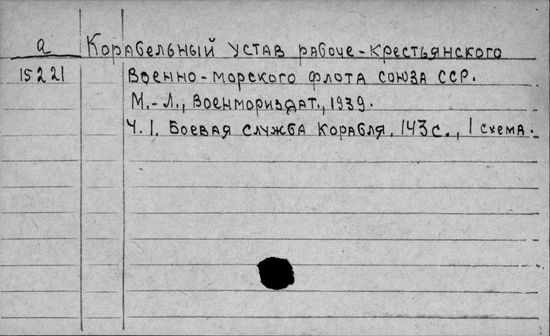 а Корабельный устав рабоче-крестьянского
15221 Военно-морского флота союза ССР.
М.-Л., Военмориздат., 1939.
Ч. 1. Боевая служба корабля. 143 с., 1 схема.